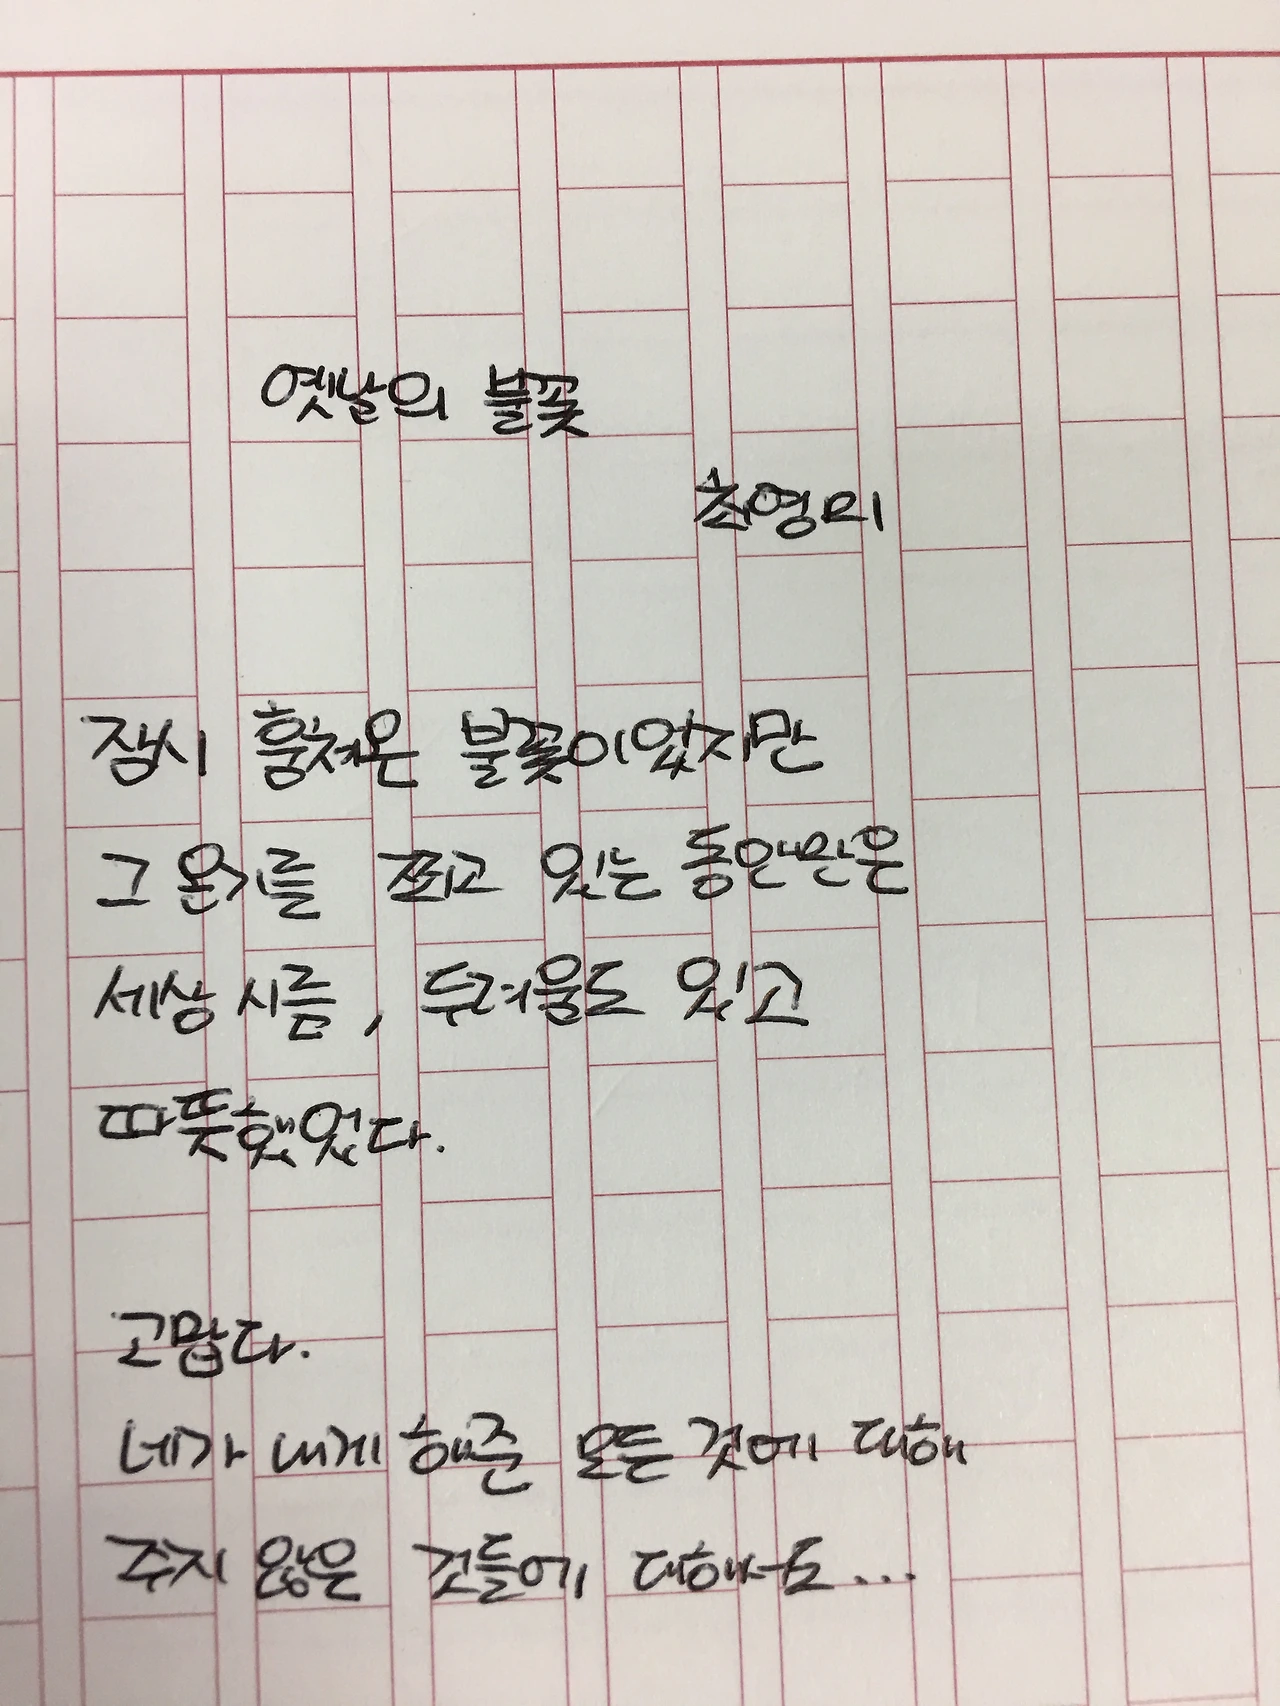 옛날의 불꽃
최영미
잠시 훔쳐온 불꽃이었지만
그 온기를 쬐고 있는 동안만은
세상 시름, 두려움도 잊고
따뜻했었다.
고맙다.
네가 내게 해준 모든 것에 대해
주지 않은 것들에 대해서도...